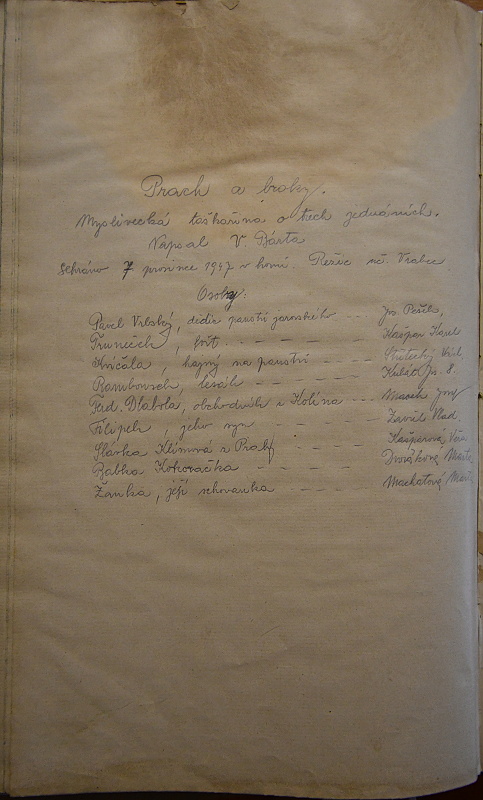 Prach a broky.
Myslivecká taškařina o třech jednáních.
Napsal V. Bárta
Sehráno 7 prosince 1947 v host. Režie uč. Vralec
Osoby:
Pavel Vrbský, dědic panství jarovského --- Jos
Truneček, fořt --- Kašpar Karel
Křičála, hajný na panství ---
Bambousek, lesák --- Kubát Jos. 8.
Ferd. Dlabola, obchodník z Kolína --- Macek Josef
Filípek, jeho syn --- Zavřel Vlad
Slávka Klímová z Prahy --- Kašparová Věra
Babka Kokoračka --- Dvořáková Marta
Žanka, její schovanka --- Machatová Marta